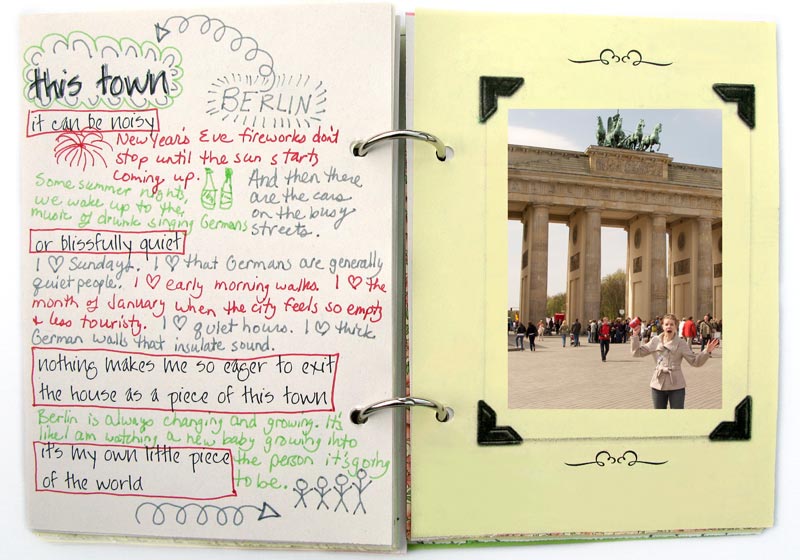 this town
BERLIN
it can be noisy
New Year's Eve fireworks don't
stop until the sun starts
coming up.
Some summer nights,
we wake up to the
music of drunk singing Germans
And then there
are the cars
on the busy
streets.
or blissfully quiet
I ♡ Sundays. I ♡ that Germans are generally
quiet people. I ♡ early morning walks. I ♡ the
month of January when the city feels so empty
& less touristy. I ♡ quiet hours. I ♡ thick
German walls that insulate sound.
nothing makes me so eager to exit
the house as a piece of this town
Berlin is always changing and growing. It's
like I am watching a new baby growing into
the person it's going
to be.
it's my own little piece
of the world